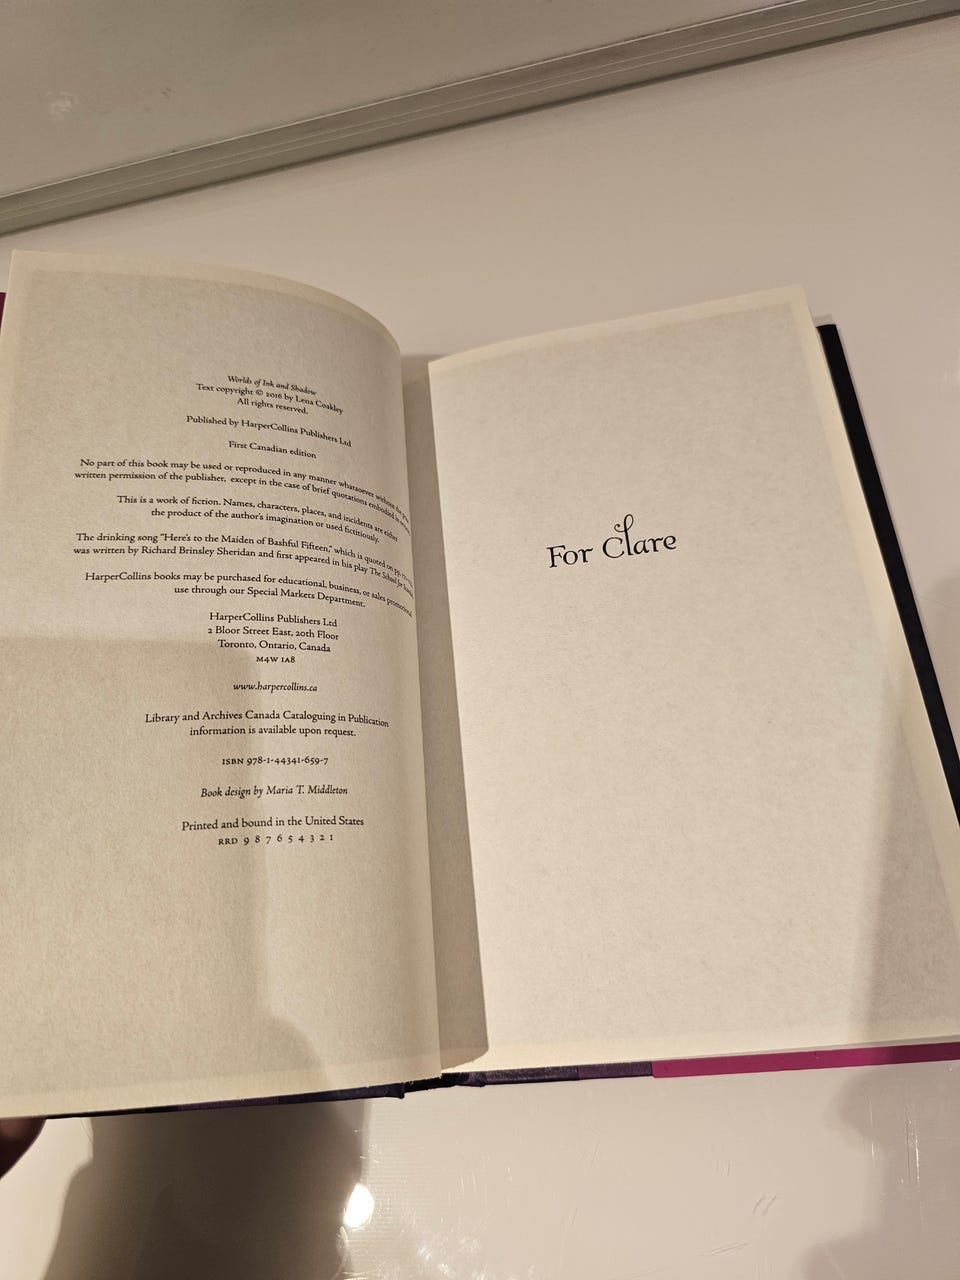 Worlds of Ink and Shadow
Text copyright © 2016 by Lena Coakley
All rights reserved.
Published by HarperCollins Publishers Ltd
First Canadian edition
No part of this book may be used or reproduced in any manner whatsoever without the
written permission of the publisher, except in the case of brief quotations embodied in
This is a work of fiction. Names, characters, places, and incidents are either
the product of the author's imagination or used fictitiously.
The drinking song "Here's to the Maiden of Bashful Fifteen," which is quoted on
was written by Richard Brinsley Sheridan and first appeared in his play The School for
HarperCollins books may be purchased for educational, business, or sales promotional
use through our Special Markets Department.
HarperCollins Publishers Ltd
2 Bloor Street East, 20th Floor
Toronto, Ontario, Canada
M4W 1A8
www.harpercollins.ca
Library and Archives Canada Cataloguing in Publication
information is available upon request.
ISBN 978-1-44341-659-7
Book design by Maria T. Middleton
Printed and bound in the United States
RRD 9 8 7 6 5 4 3 2 1
For Clare